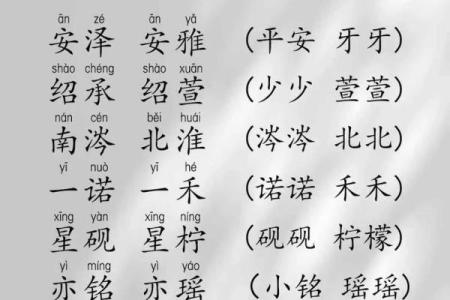 ān zé ān yǎ
安泽 安雅 (平安 牙牙)
shào chéng shào xuān
绍承 绍萱 (少少 萱萱)
nán cén běi huái
南涔 北淮 (涔涔 北北)
yī nuò yī hé
一诺 一禾 (诺诺 禾禾)
xīng yàn xīng níng
星砚 星柠 (砚砚 柠檬)
yì míng yì yáo
亦铭 亦瑶 (小铭 瑶瑶)